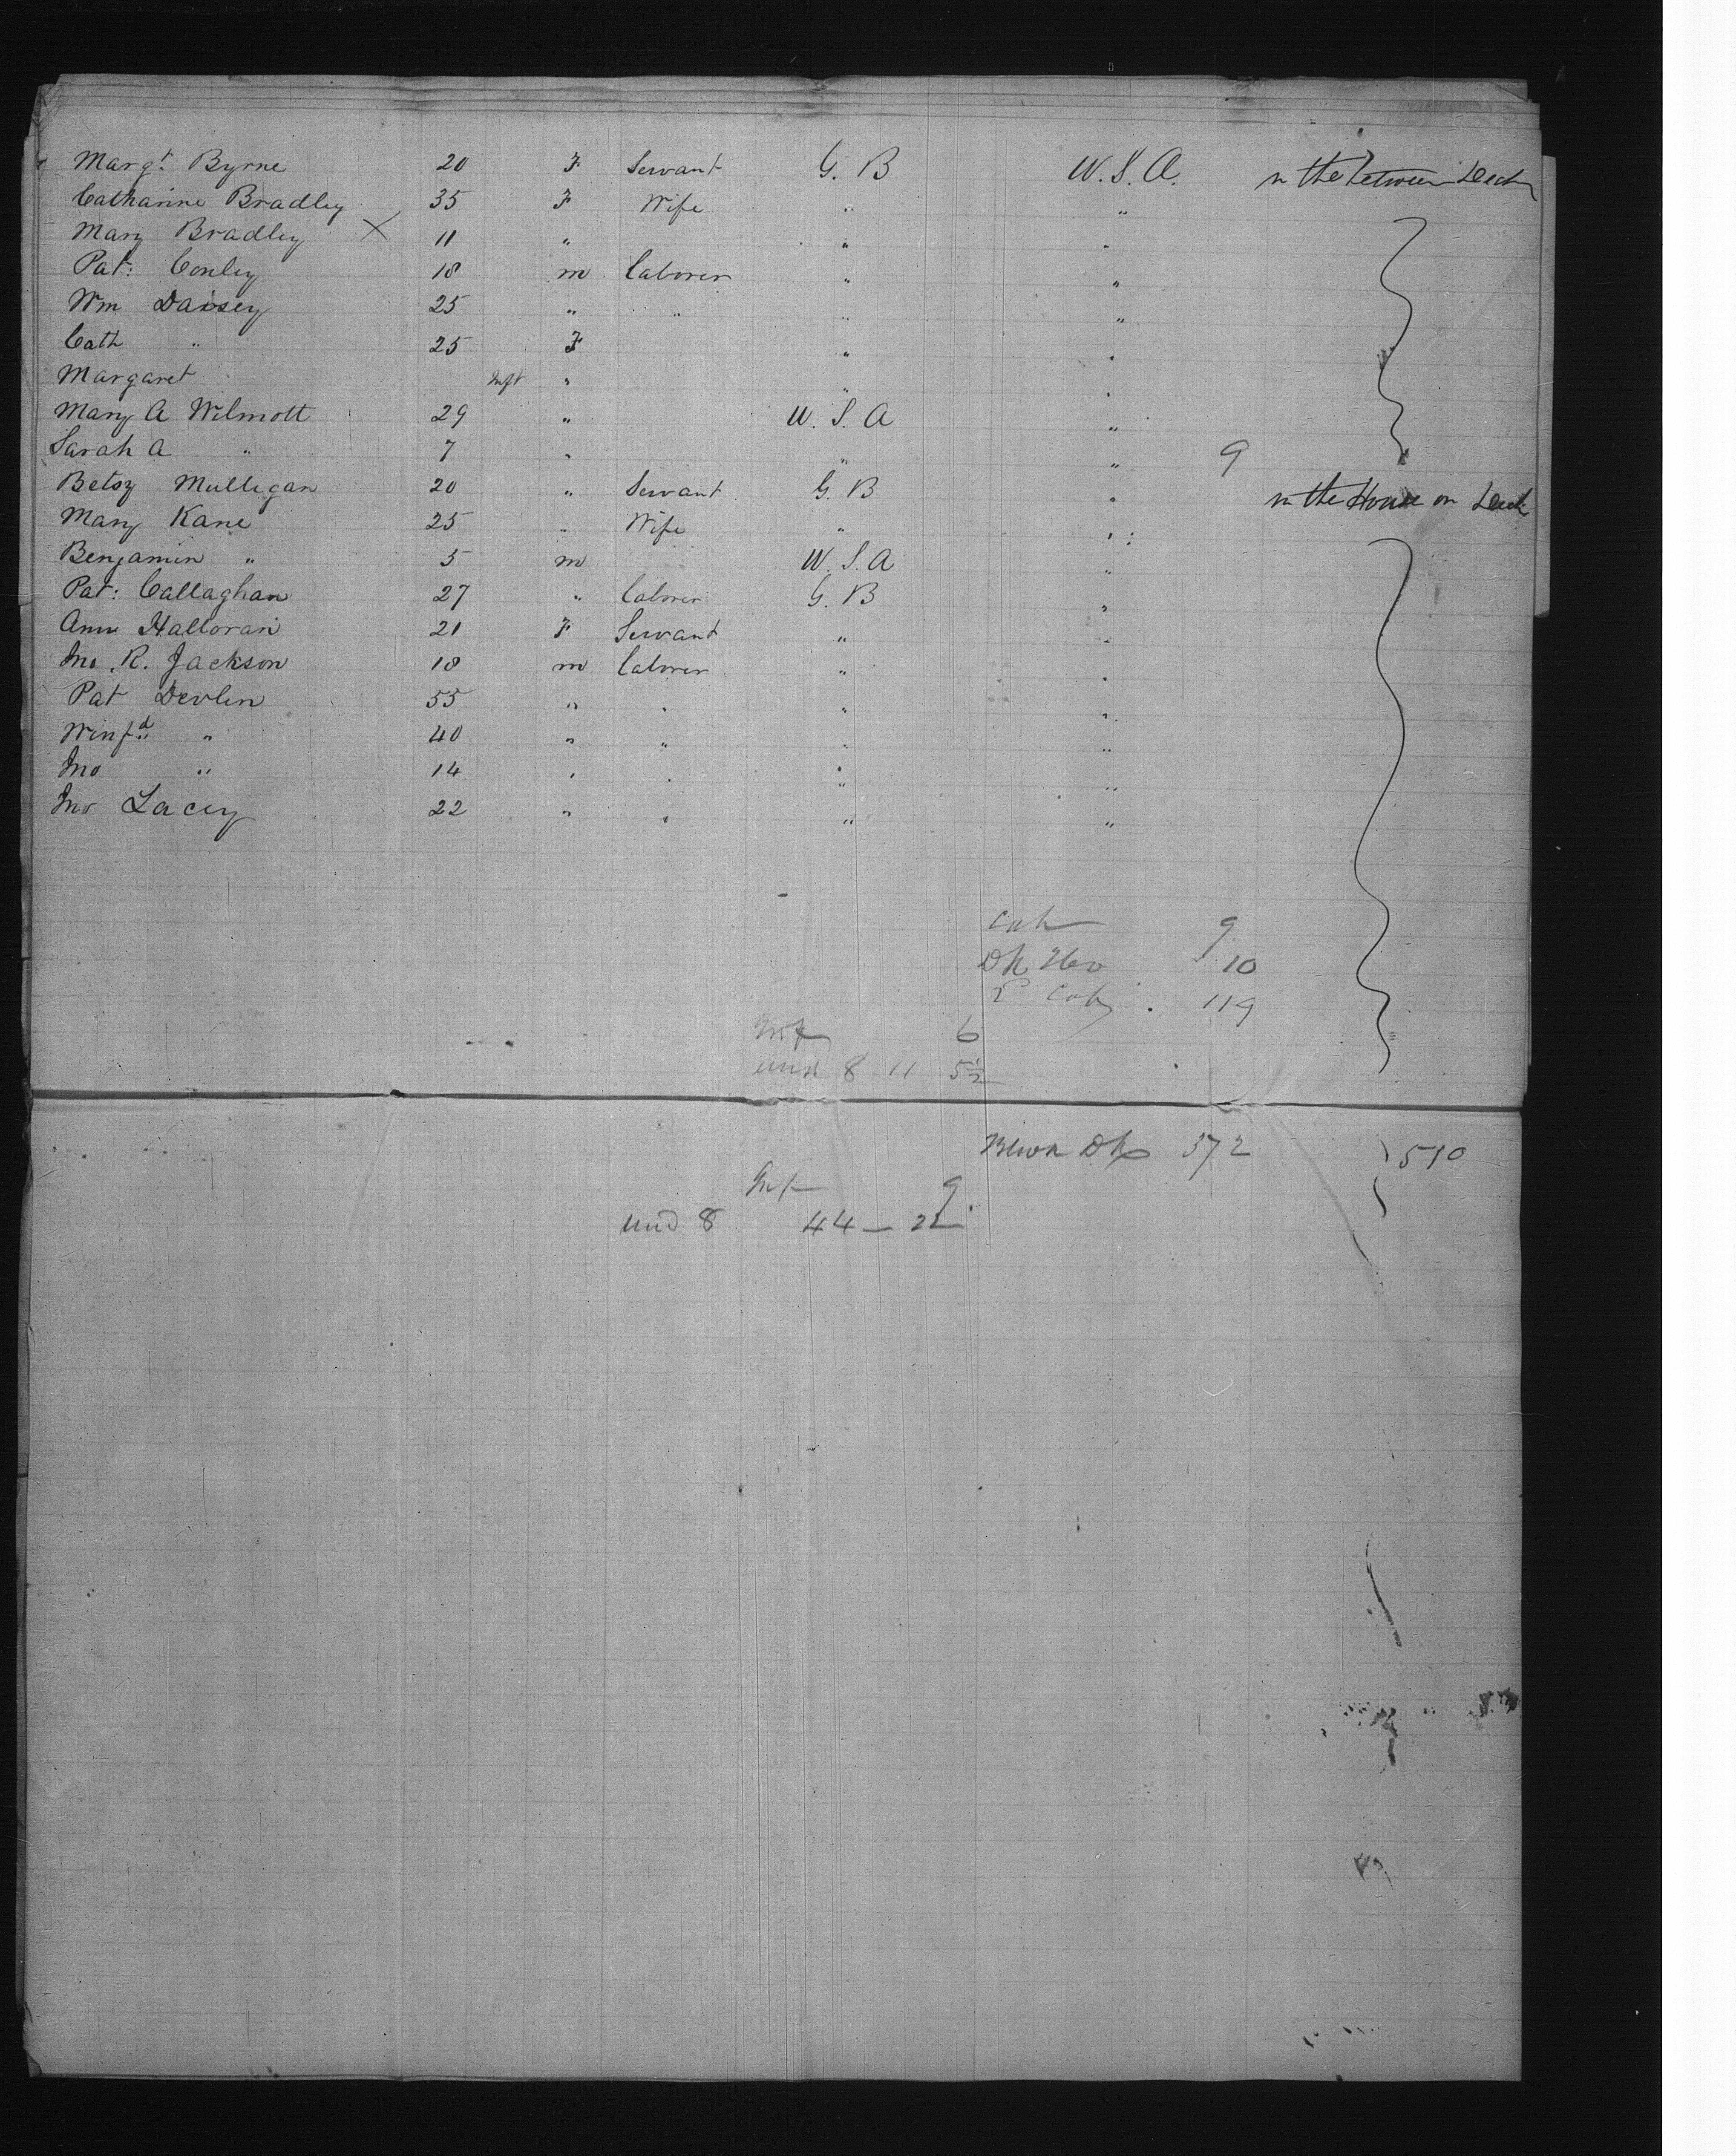 Margt. Byrne 20 F Servant G. B U. S. A. in the between Deck
Catharine Bradley 35 F Wife " "
Mary Bradley X 11 " " "
Pat: Conley 18 m Laborer " "
Wm Daisey 25 " " " "
Cath " 25 F " "
Margaret Inft " " "
Mary A Wilmott 29 " U. S. A "
Sarah A " 7 " " " 9
Betsy Mulligan 20 " Servant G. B " in the House on Deck
Mary Kane 25 " Wife " "
Benjamin " 5 m U. S. A "
Pat: Callaghan 27 " Laborer G. B "
Ann Halloran 21 F Servant " "
Jno. R. Jackson 18 m Laborer " "
Pat Devlin 55 " " " "
Winfd " 40 " " " "
Jno " 14 " " " "
Jno Lacey 22 " " " "
Cab 9
Dk Ho 10
2 Cab 119
Inf 6
und 8 11 5½
Btwn Dk 372 510
Inf 9
und 8 44 — 22